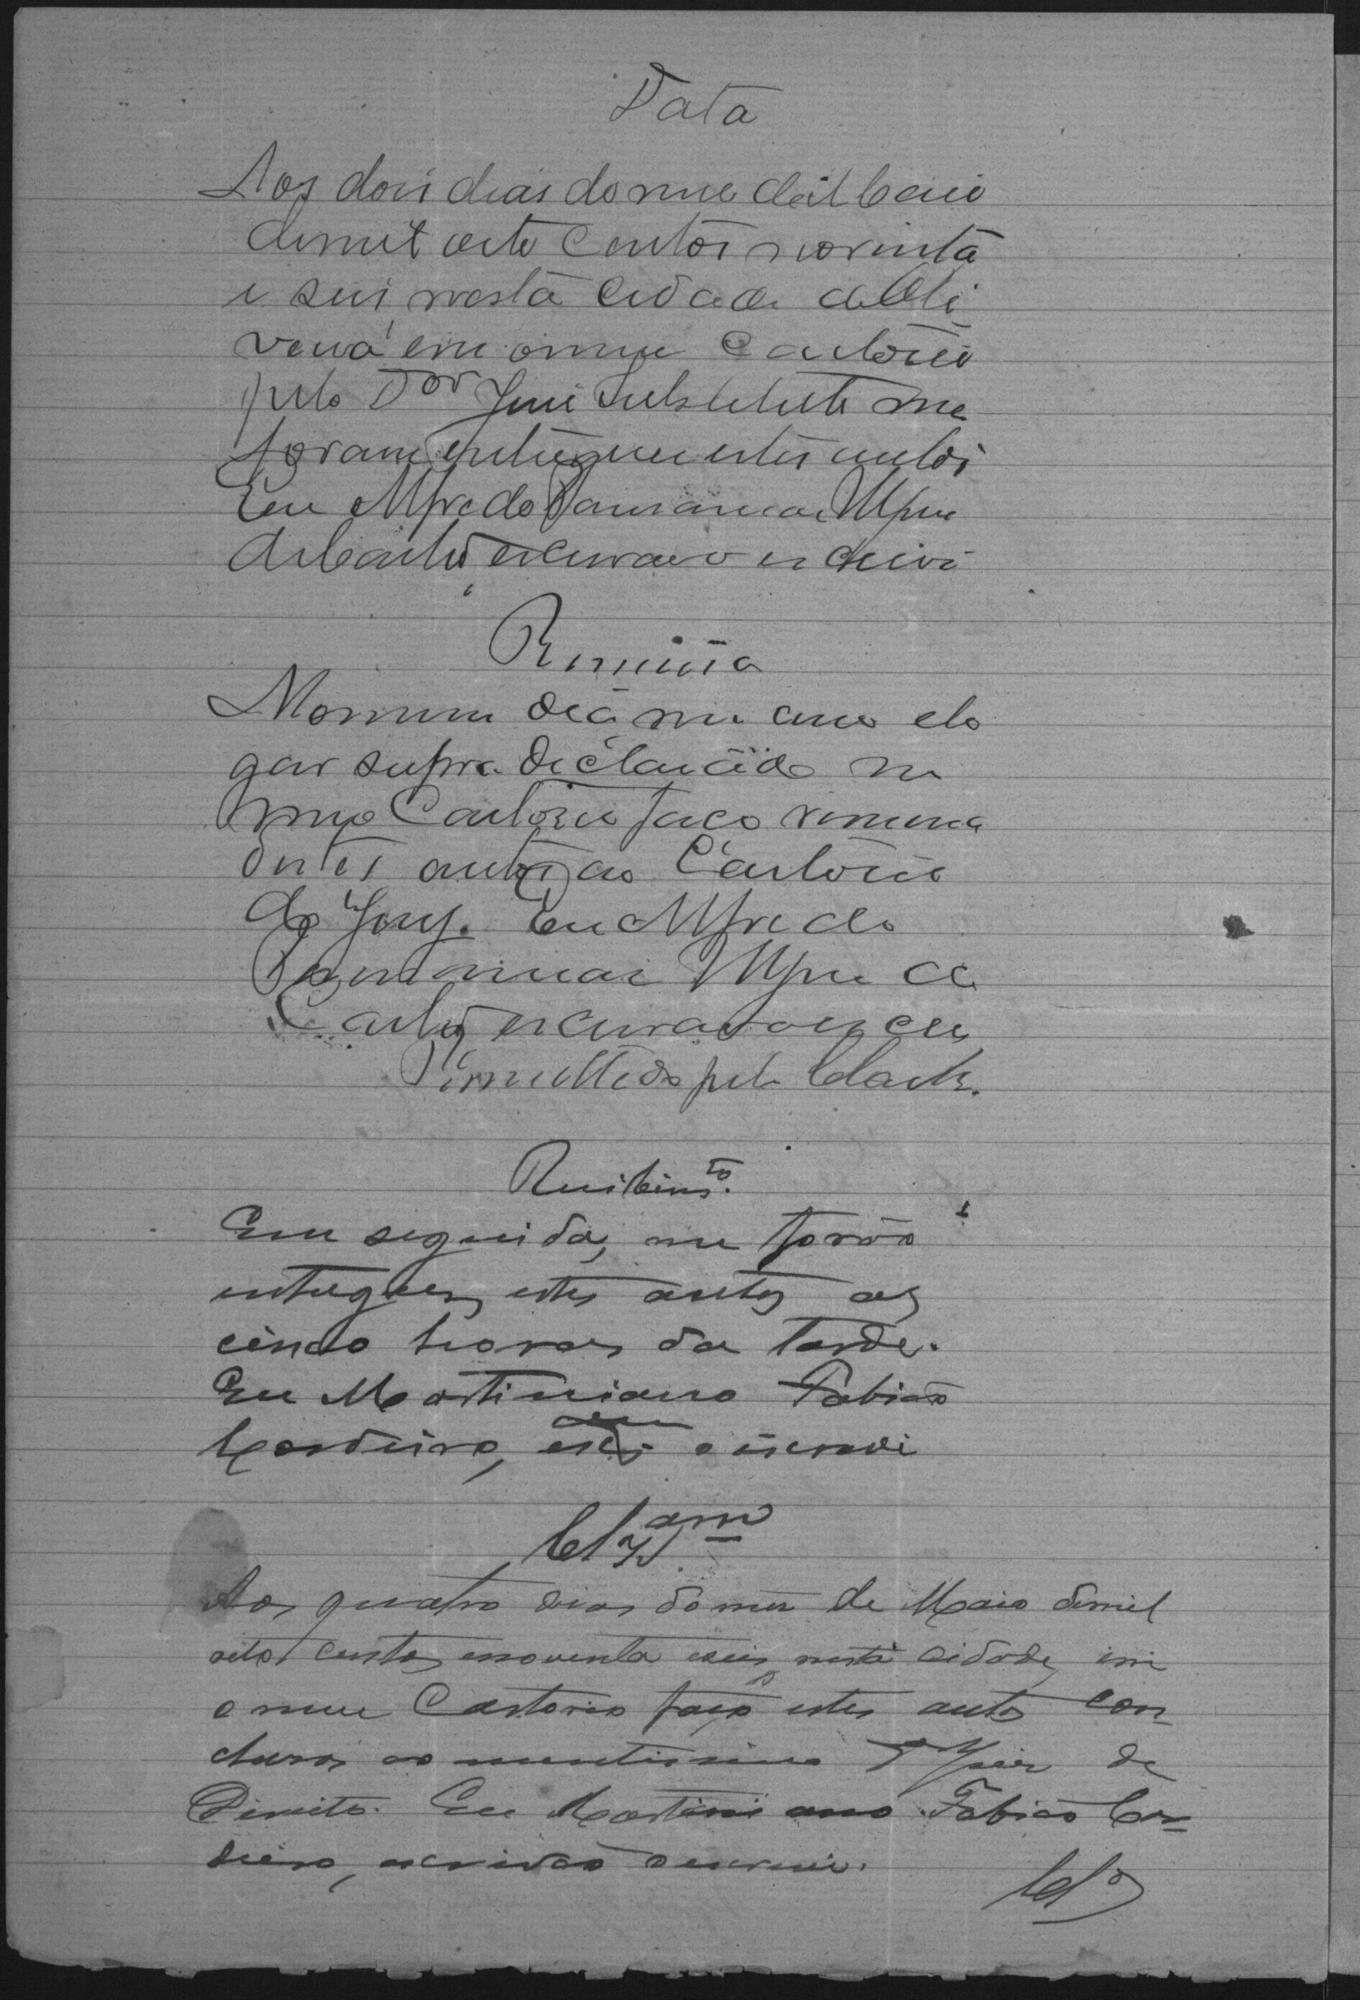 Data
Aos dois dias do mes de Maio
de mil oito centos noventa
e seis nesta Cidade de Oli
veira em o meu Cartorio
pelo Dor Juiz Substituto me
foram entregues estes autos
Eu Alfredo Alpre
de Castro escrivão escrivi
Remessa
No mesmo dia mes anno e lo
gar supra declarado no
meo Cartorio faço remessa
destes autos ao Cartorio
do Jury. Eu Alfredo
Alpre de
Castro escrivão escri
Remettido pelo
Recibimto.
Em seguida, me forão
entregues estes autos as
cinco horas da tarde.
Eu Martiniano Fabião
Cordeiro, o escrevi
Clsam
Aos quatro dias do mes de Maio de mil
oito centos e noventa e seis, nesta cidade, em
o meu Cartorio faço estes autos con-
clusos ao meretissimo Dr Juiz de
Direito. Eu Martiniano Fabião Cor-
deiro, escrivão o escrevi.
Clo